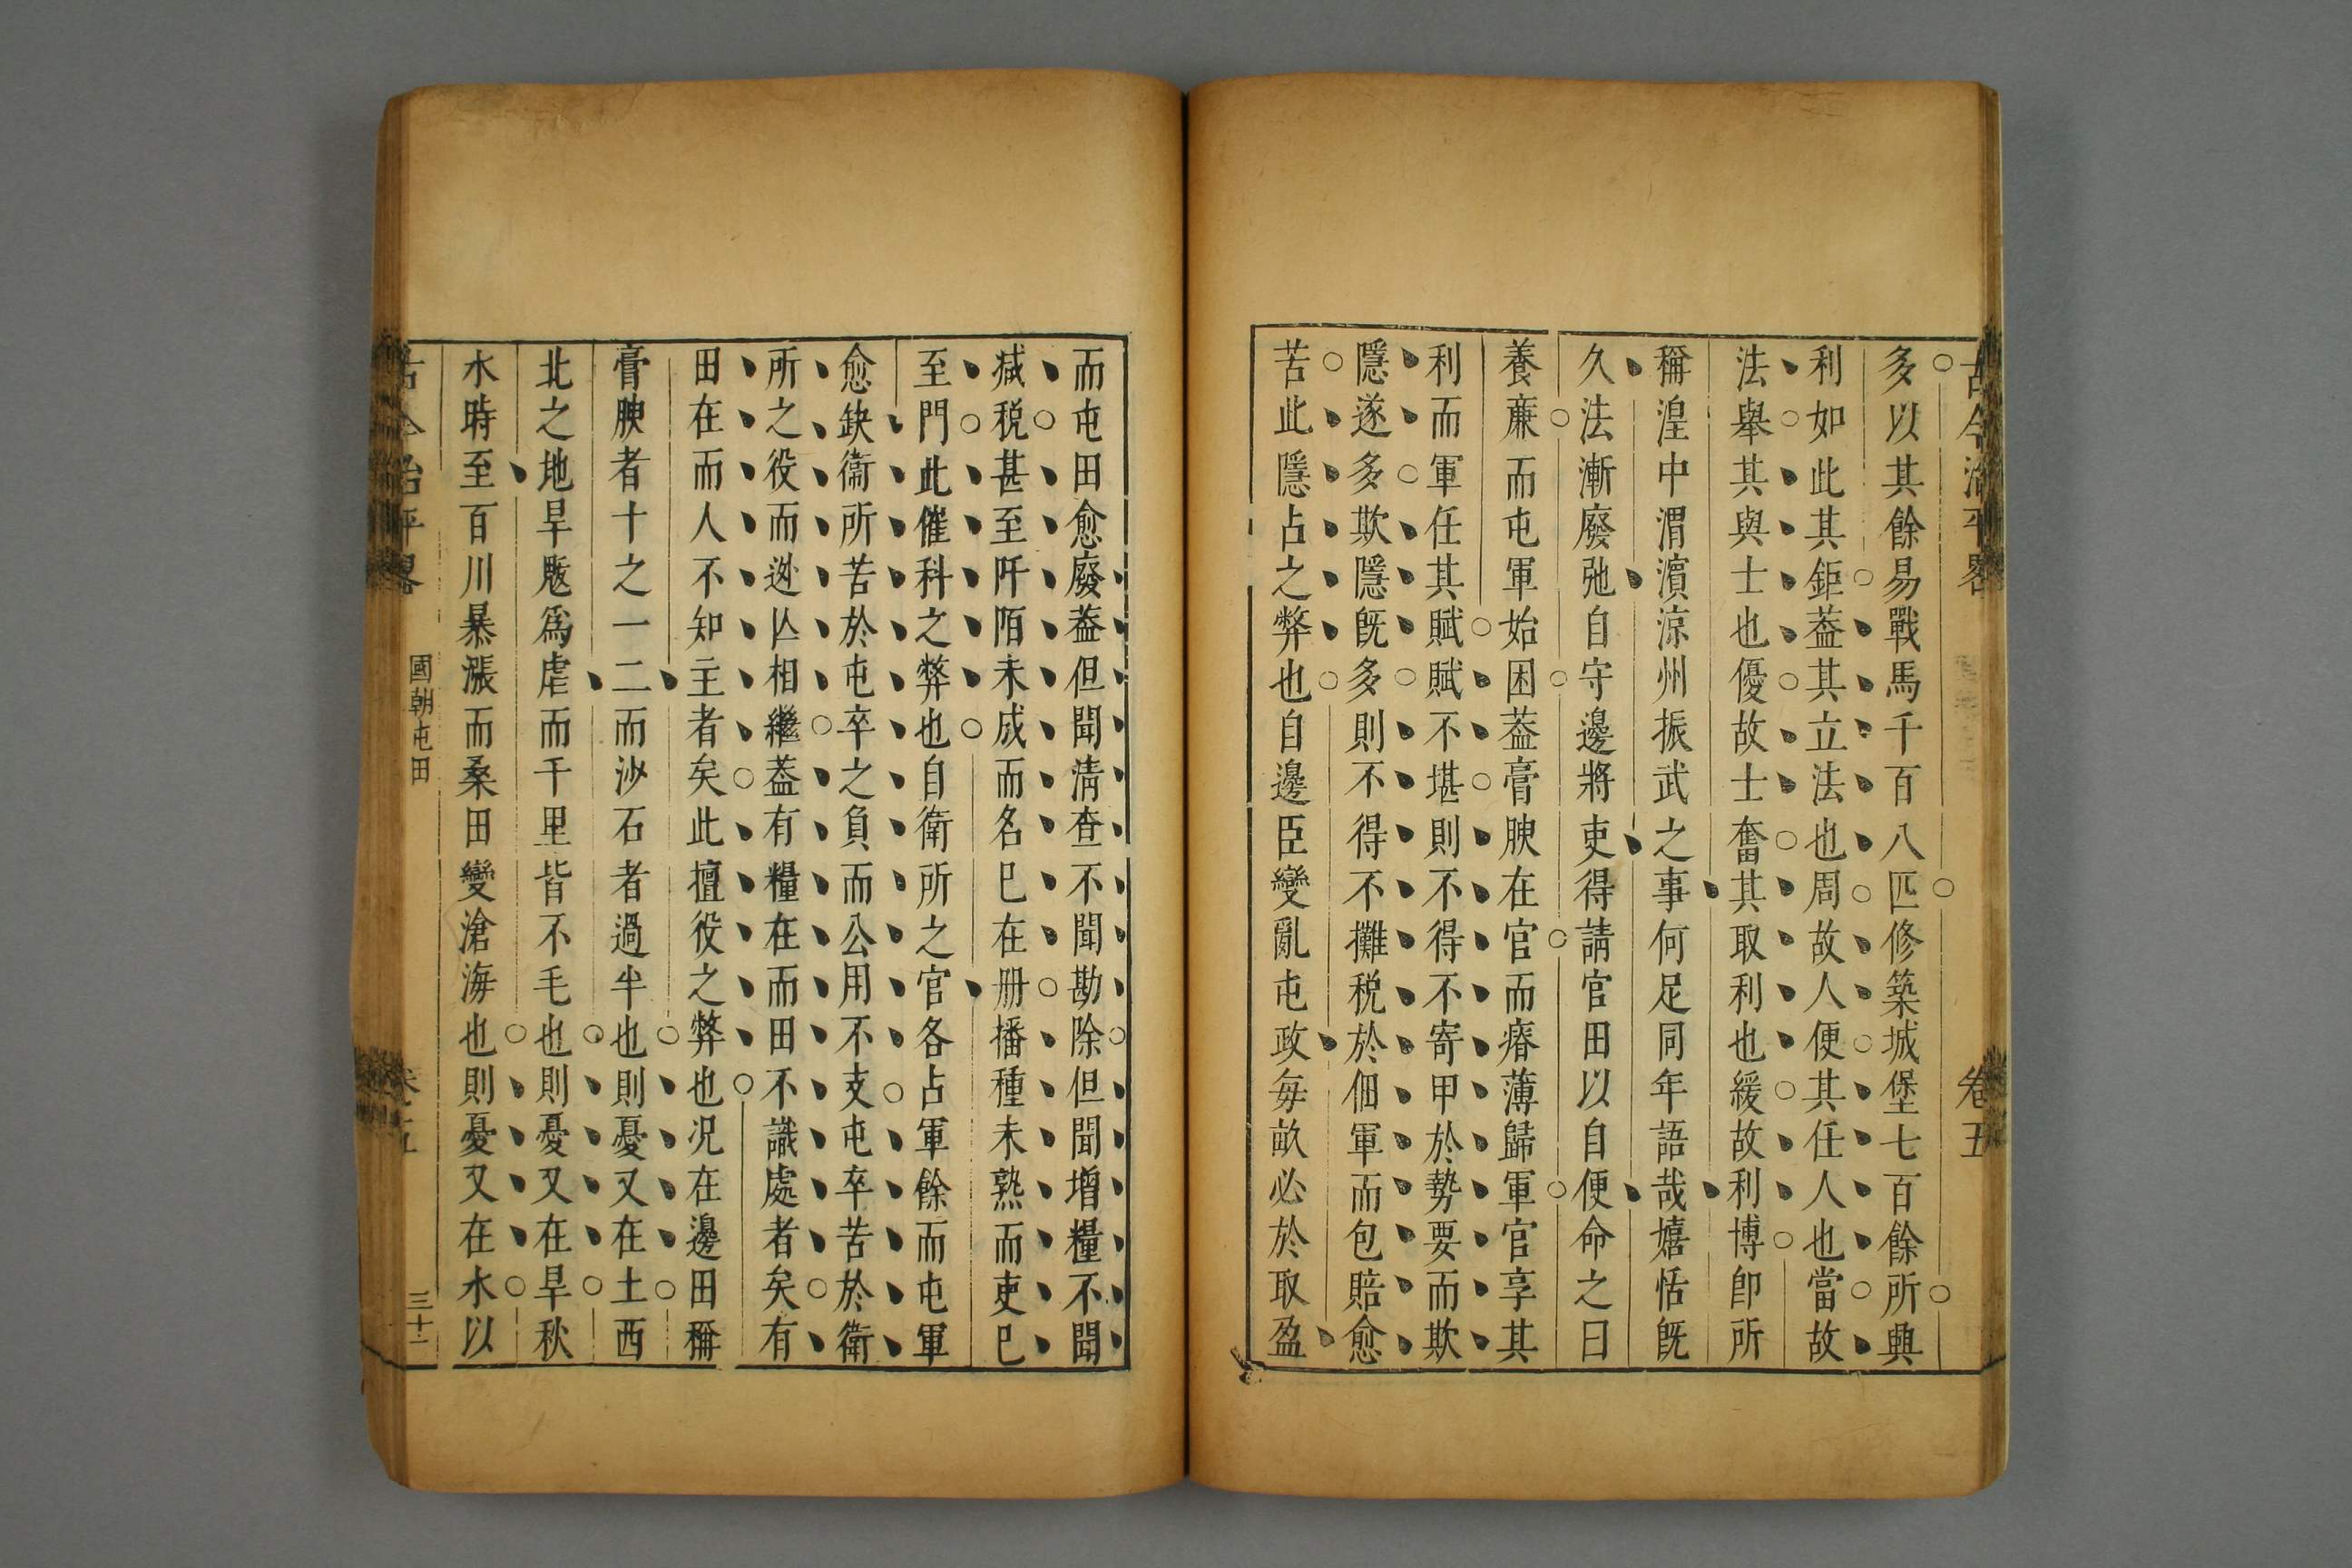 古今治平畧
卷五
多以其餘易戰馬千百八匹修築城堡七百餘所興
利如此其鉅葢其立法也周故人便其任人也當故
法舉其與士也優故士奮其取利也緩故利博卽所
稱湟中渭濵涼州振武之事何足同年語哉嬉恬旣
久法漸廢弛自守邊將吏得請官田以自便命之曰
養蔗而屯軍始困葢膏腴在官而瘠薄歸軍官享其
利而軍任其賦賦不堪則不得不寄甲於勢要而欺
隱遂多欺隱旣多則不得不攤税於佃軍而包賠愈
苦此隱占之弊也自邊臣變亂屯政每畝必於取盈
而屯田愈廢葢但聞清查不聞勘除但聞增糧不聞
减税甚至阡陌未成而名已在册播種未熟而吏已
至門此催科之弊也自衛所之官各占軍餘而屯軍
愈缺衞所苦於屯卒之負而公用不支屯卒苦於衛
所之役而逃亾相繼葢有糧在而田不識處者矣有
田在而人不知主者矣此擅役之弊也况在邊田稱
膏腴者十之一二而沙石者過半也則憂又在土西
北之地旱魃爲虐而千里皆不毛也則憂又在旱秋
水時至百川暴漲而桑田變滄海也則憂又在水以
古今治平畧
國朝屯田
卷五
三十一